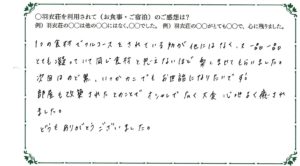 〇羽衣荘を利用されて（お食事・ご宿泊）のご感想は？
例）羽衣荘は他の〇〇にはなく、〇〇でした。 例）羽衣荘の〇〇がとても〇〇で、心に残りました。
1つの食材でフルコースをされている所が他にはなく、又一品一品
とても凝っていて同じ食材と思えないほど楽しませてもらいました。
次回はカニ等、いつかカニでもお世話になりたいです。
部屋も改築されたとのことでオシャレでなく大変心地よく癒され
ました。
どうもありがとうございました。